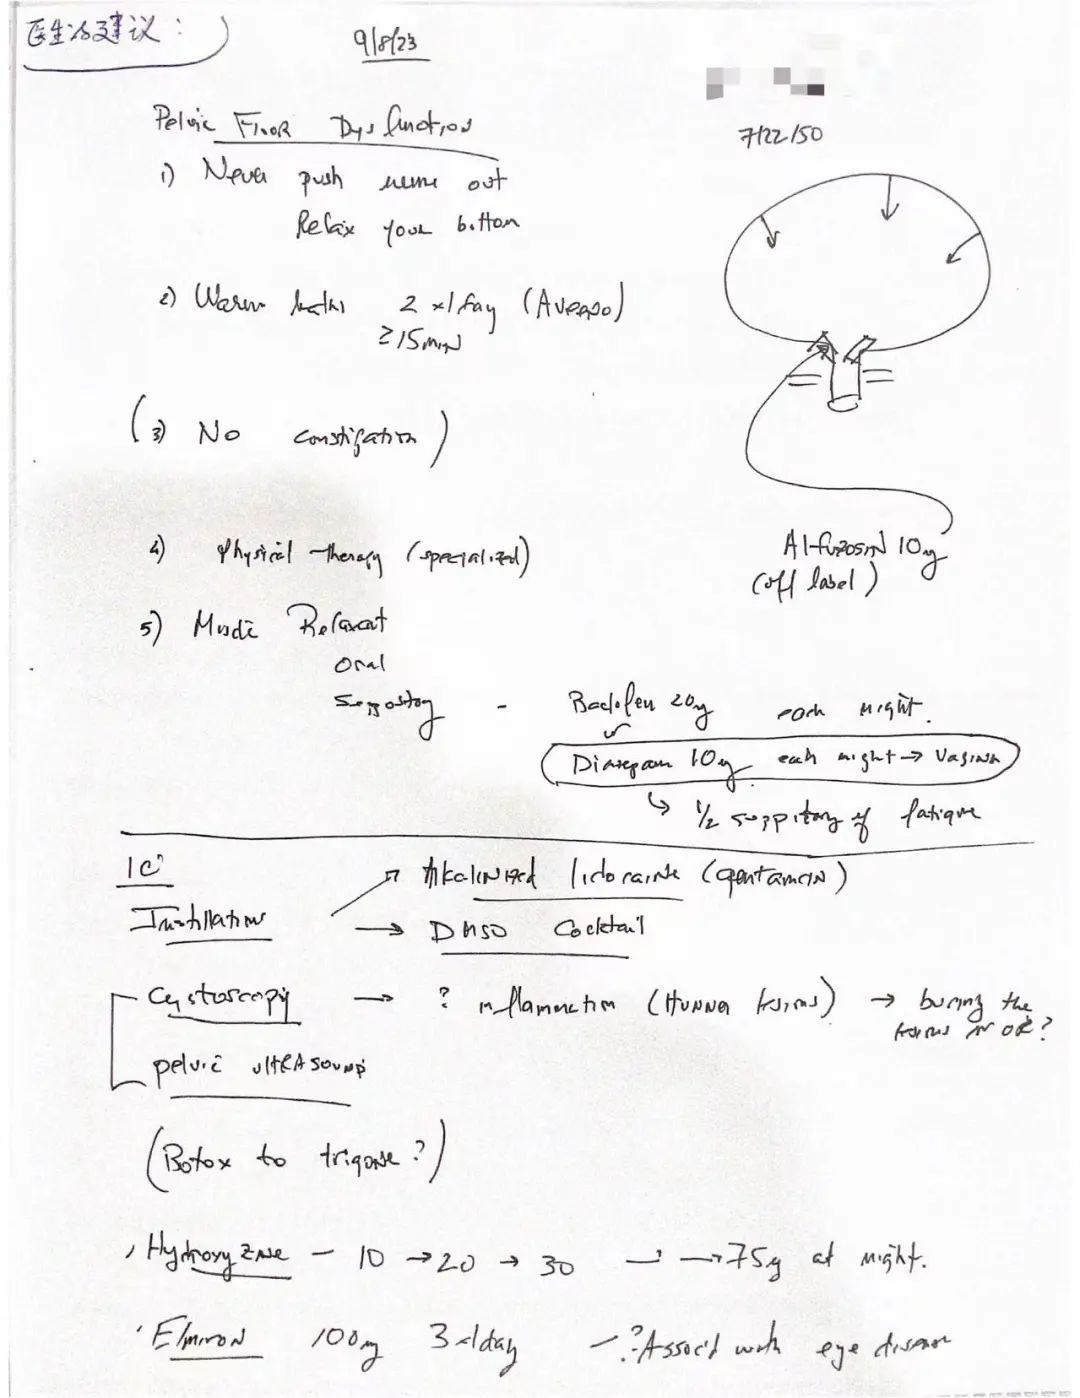 医生的建议:
9/8/23
7/22/50
Pelvic Floor Dysfunction
1) Never push urine out
Relax your bottom
2) Warm baths 2x/day (Aveeno)
≥15 min
(3) No constipation)
4) Physical therapy (specialized)
Alfuzosin 10mg
(off label)
5) Muscle Relaxant
Oral
Suppository - Baclofen 20mg each night.
or
Diazepam 10mg each night → Vagina
↳ 1/2 suppository if fatigue
IC
Instillation → Alkalinized lidocaine (gentamicin)
→ DMSO Cocktail
Cystoscopy → ? inflammation (Hunner lesions) → burning the
lesions in OR?
pelvic ultrasound
(Botox to trigone?)
Hydroxyzine - 10 → 20 → 30 → 75mg at night.
Elmiron 100mg 3x/day - ? Assoc'd with eye disease